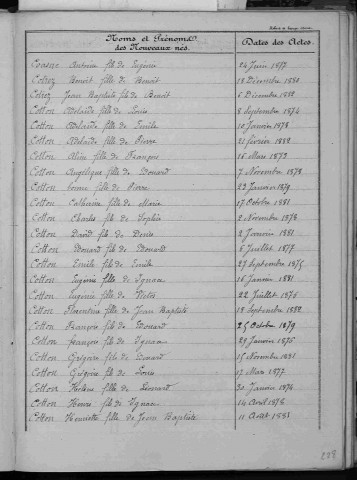 Noms et Prénoms
des Nouveaux nés.
Dates des Actes.
fils de Eugénie 24 Juin 1877
Benoit fils de Benoit 18 Décembre 1880
Jean Baptiste fils de Benoit 6 Décembre 1882
Cotton Adelaïde fille de Louis 8 Septembre 1874
Cotton Adelaïde fille de Emile 10 Janvier 1878
Cotton Adelaïde fille de Pierre 21 février 1882
Cotton Aline fille de François 16 Mars 1873
Cotton Angélique fille de Edouard 7 Novembre 1878
Cotton fille de Pierre 23 Janvier 1879
Cotton Catherine fille de Marie 17 Octobre 1881
Cotton Charles fils de Sophie 2 Novembre 1878
Cotton David fils de Denis 2 Janvier 1881
Cotton Edouard fils de Edouard 6 Juillet 1877
Cotton Emile fils de Emile 27 Septembre 1875
Cotton Eugénie fille de Ignace 16 Janvier 1881
Cotton Eugénie fille de Victor 22 Juillet 1876
Cotton Florentine fille de Jean Baptiste 18 Septembre 1882
Cotton François fils de Edouard 25 Octobre 1879
Cotton François fils de Ignace 29 Janvier 1876
Cotton Grégoire fils de Edouard 15 Novembre 1881
Cotton Grégoire fils de Louis 17 Mars 1877
Cotton Hélène fille de 30 Janvier 1876
Cotton Henri fils de Ignace 14 Avril 1878
Cotton Henriette fille de Jean Baptiste 11 Août 1881